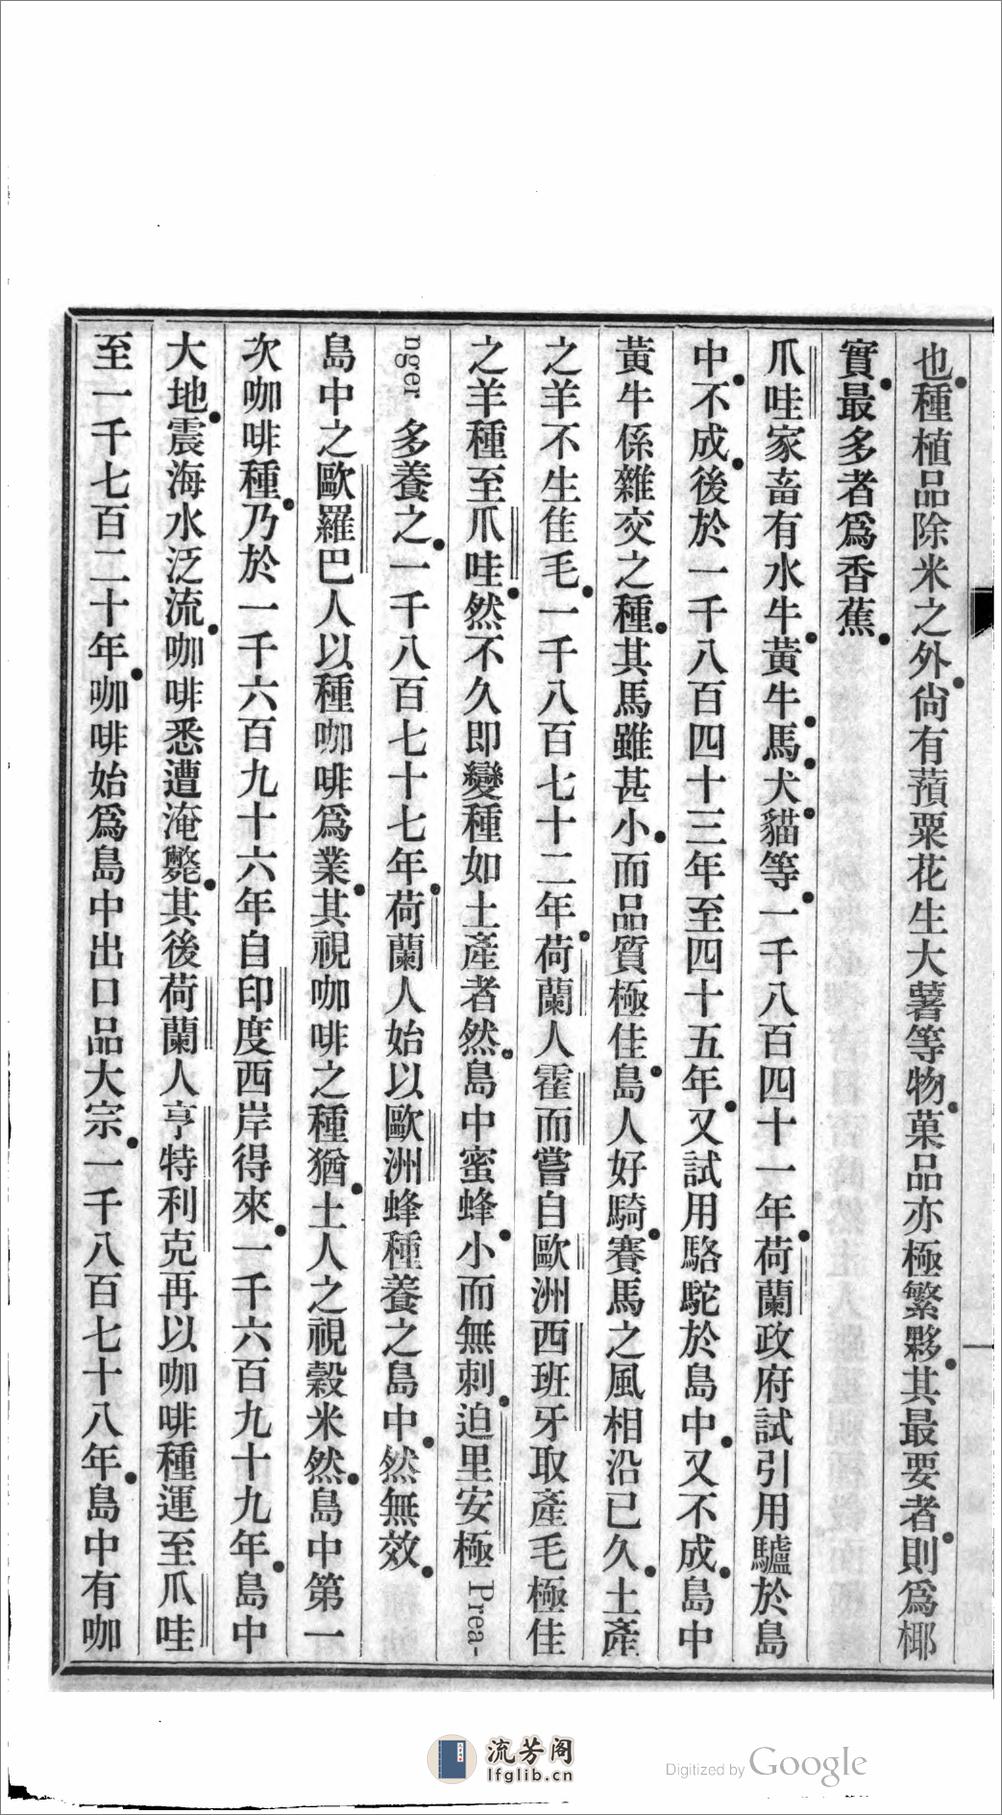 也種植品除米之外尙有蕷粟花生大薯等物菓品亦極繁夥其最要者則爲椰
實最多者爲香蕉
爪哇家畜有水牛黃牛馬犬貓等一千八百四十一年荷蘭政府試引用驢於島
中不成後於一千八百四十三年至四十五年又試用駱駝於島中又不成島中
黃牛係雜交之種其馬雖甚小而品質極佳島人好騎賽馬之風相沿已久土產
之羊不生隹毛一千八百七十二年荷蘭人霍而嘗自歐洲西班牙取產毛極佳
之羊種至爪哇然不久即變種如土產者然島中蜜蜂小而無刺迫里安極 Prea-
nger 多養之一千八百七十七年荷蘭人始以歐洲蜂種養之島中然無效
島中之歐羅巴人以種咖啡爲業其視咖啡之種猶土人之視穀米然島中第一
次咖啡種乃於一千六百九十六年自印度西岸得來一千六百九十九年島中
大地震海水泛流咖啡悉遭淹斃其後荷蘭人亨特利克再以咖啡種運至爪哇
至一千七百二十年咖啡始爲島中出口品大宗一千八百七十八年島中有咖
流芳阁
lfglib.cn
Digitized by Google